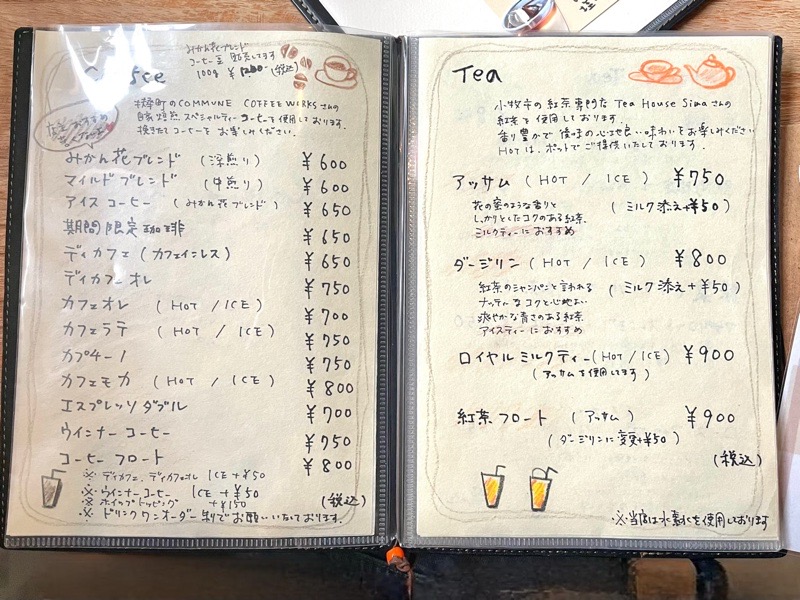 Coffee
みかん花ブレンド
コーヒー豆 販売してます
100g ¥1200 (税込)
のCOMMUNE COFFEE WORKSさんの
自家焙煎スペシャルティーコーヒーを使用しております。
挽きたてコーヒーをお楽しみください。
みかん花ブレンド (深煎り) ¥600
マイルドブレンド (中煎り) ¥600
アイスコーヒー (みかん花ブレンド) ¥650
期間限定珈琲 ¥650
ディカフェ (カフェインレス) ¥650
ディカフェオレ ¥750
カフェオレ (HOT / ICE) ¥700
カフェラテ (HOT / ICE) ¥750
カプチーノ ¥750
カフェモカ (HOT / ICE) ¥800
エスプレッソダブル ¥700
ウインナーコーヒー ¥750
コーヒーフロート ¥800
※ディカフェ、ディカフェオレ ICE+¥50
※ウインナーコーヒー ICE+¥50
※ホイップトッピング +¥150
(税込)
※ドリンクワンオーダー制でお願いいたしております。
Tea
小牧市の紅茶専門店 Tea House Simaさんの
紅茶を使用しております。
香り豊かで後味の心地良い味わいをお楽しみください
HOTは、ポットでご提供いたしております。
アッサム (HOT / ICE) ¥750
花の蜜のような香りと
しっかりとしたコクのある紅茶。
ミルクティーにおすすめ
(ミルク添え+¥50)
ダージリン (HOT / ICE) ¥800
紅茶のシャンパンと言われる
ナッティなコクと心地よい
爽やかな青さのある紅茶
アイスティーにおすすめ
(ミルク添え+¥50)
ロイヤルミルクティー (HOT / ICE) ¥900
(アッサムを使用してます)
紅茶フロート (アッサム) ¥900
(ダージリンに変更+¥50)
(税込)
※当店は水素水を使用しております